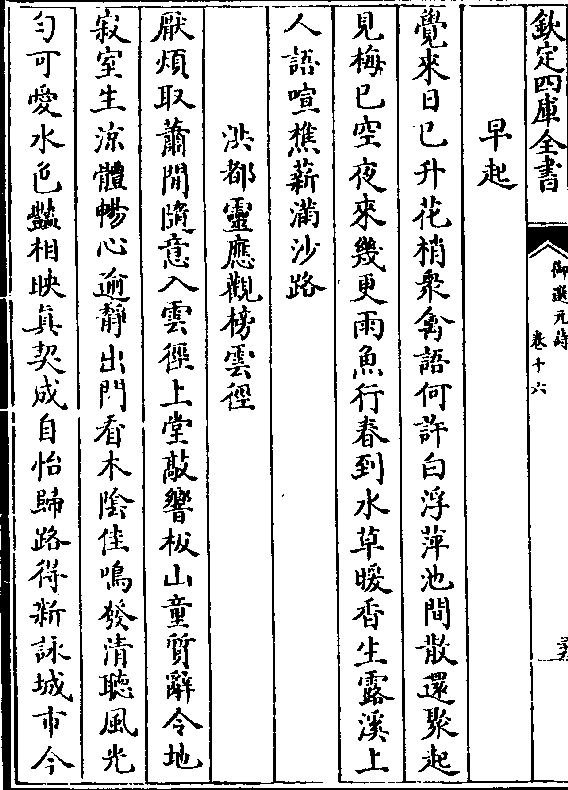 欽定四庫全書
御選元詩
卷十六
早起
覺來日已升花梢衆禽語何許白浮萍池間散還聚起
見梅已空夜來幾更雨魚行春到水草暖香生露溪上
人語喧樵薪滿沙路
洪都靈應觀榜雲徑
厭煩取蕭閒隨意入雲徑上堂敲響板山童質辭令地
寂室生涼體暢心逾靜出門看木陰佳鳴發清聽風光
匀可愛水色豔相映真契成自怡歸路得新詠城市今